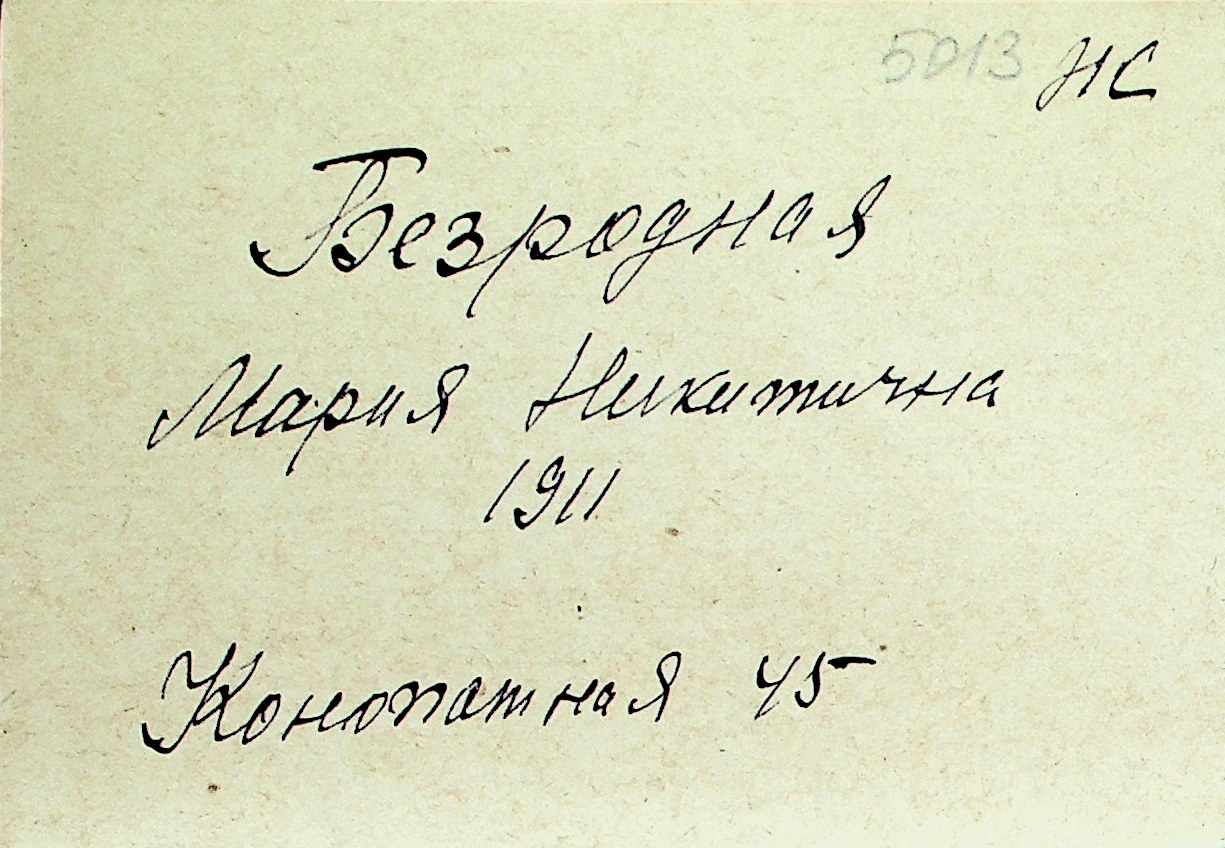 5013 НС
Безродная
Мария Никитична
1911
Конопатная 45